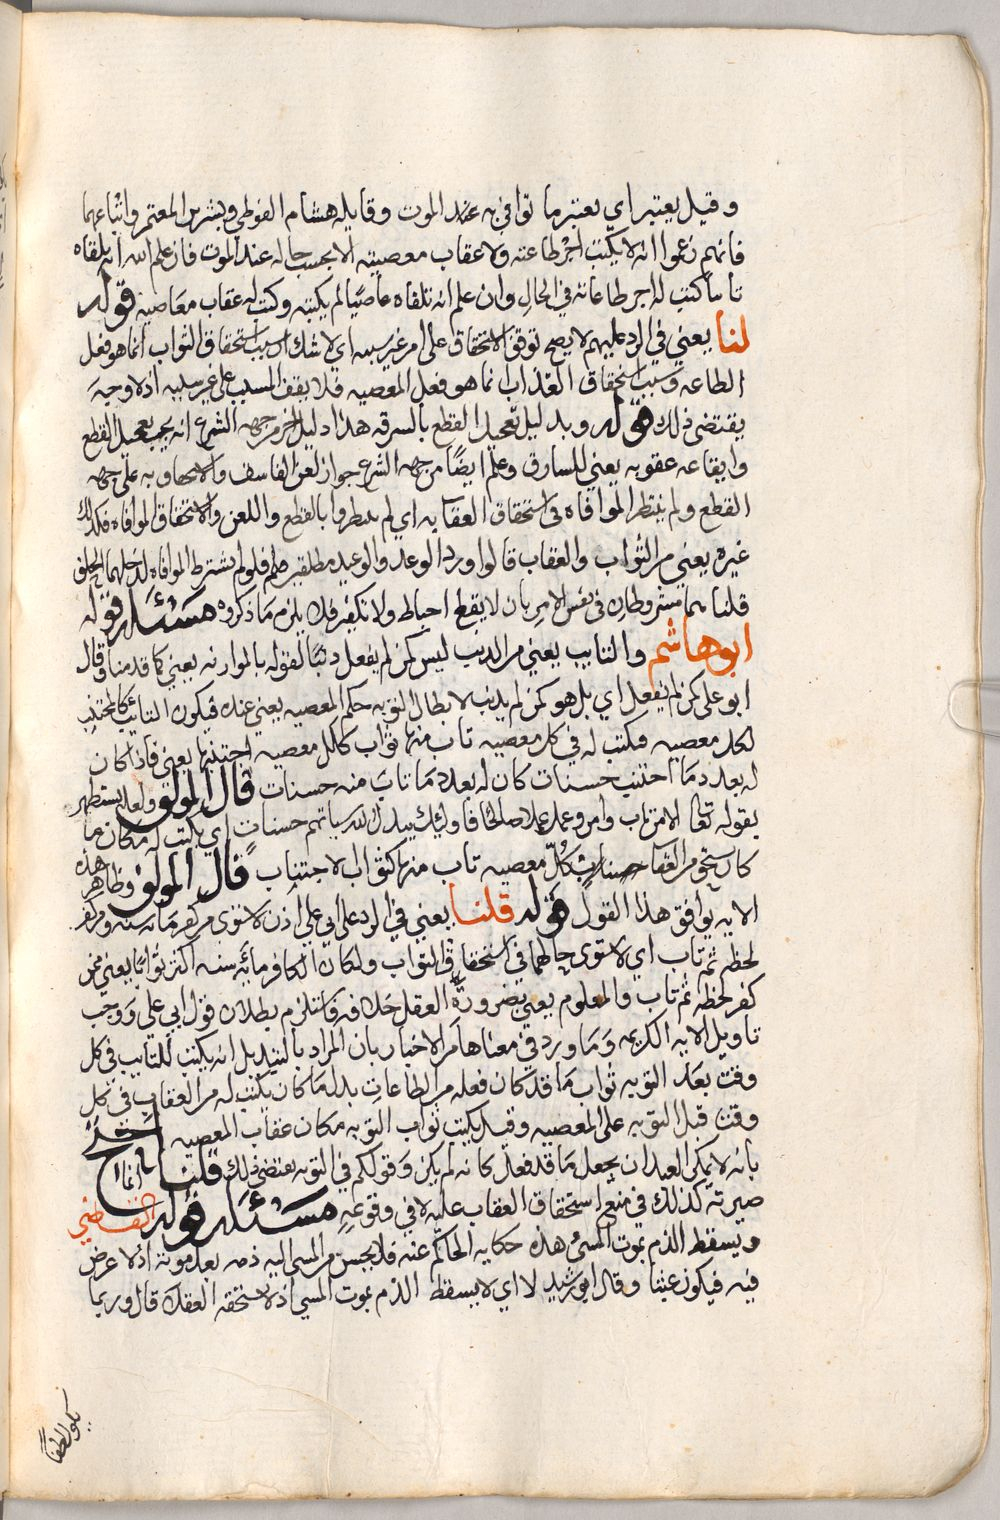 وقيل يعتبر اي يعتبر ما توافى به عند الموت وقايله هشام الفوطي وبشر بن المعتمر واتباعهما
فانهم زعموا انه لا يكتب اجر طاعته ولا عقاب معصيته الا بحسب حاله عند الموت فان علم الله انه يلقاه
تايبا كتب له اجر طاعاته في الحال وان علم انه تلقاه عاصيا لم يكتبه وكتب له عقاب معاصيه قوله
لنا يعني في الرد عليهم لا يصح توقف الاستحقاق على امر غير سببه اي لا شك ان سبب استحقاق الثواب انما هو فعل
الطاعه وسبب استحقاق العذاب انما هو فعل المعصيه فلا يقف المسبب على غير سببه اذ لا وجه
يقتضي ذلك قوله وبدليل تعجيل القطع بالسرقه هذا دليل اخر من جهه الشرع انه يجب تعجيل القطع
وايقاعه عقوبه يعني للسارق وعلم ايضا من جهه الشرع جواز لعن الفاسق والاستخفاف به على جهه
القطع ولم ينتظر الموافاه في استحقاق العقاب اي لم ينتظروا بالقطع واللعن والاستحقاق الموافاه فكذلك
غيره يعني من الثواب والعقاب قالوا ورد الوعد والوعيد مطلقين فلو لم يشترط الموافاه لدخلهما الخلف
قلنا هما مشروطان في نفس الامر بان لا يقع احباط ولا تكفير فلا يلزم ما ذكروه مسئله قوله
ابو هاشم والتايب يعني من الذنب ليس كمن لم يفعل ذنبا لقوله بالموازنه يعني كما قدمنا وقال
ابو علي كمن لم يفعل اي بل هو كمن لم يذنب لابطال التوبه حكم المعصيه يعني عنده فيكون التايب كالمجتنب
لكل معصيه فيكتب له في كل معصيه تاب منها ثواب كالكل معصيه اجتنبها يعني فاذا كان
له بعدد ما اجتنب حسنات كان له بعدد ما تاب منه حسنات قال المولف ولعله يستظهر
بقوله تعالى الا من تاب وامن وعمل عملا صالحا فاوليك يبدل الله سياتهم حسنات اي يكتب له مكان ما
كان يستحق من العقاب حسنات بكل معصيه تاب منها كثواب الاجتناب قال المولف وظاهر هذه
الايه يوافق هذا القول قوله قلنا يعني في الرد على ابي علي اذن لاستوى من كفر مائة سنه ومن كفر
لحظه ثم تاب اي لاستوى حالهما في استحقاق الثواب ولكان الكافر مائة سنه اكثر ثوابا يعني ممن
كفر لحظه ثم تاب والمعلوم يعني بضرورة العقل خلافه فاستلزم بطلان قول ابي علي ووجب
تاويل الايه الكريمه وما ورد في معناها من الاخبار بان المراد بالتبديل انه يكتب للتايب في كل
وقت بعد التوبه ثواب ما قد كان فعله من الطاعات بدل ما كان يكتب له من العقاب في كل
وقت قبل التوبه على المعصيه وقيل يكتب ثواب التوبه مكان عقاب المعصيه احتج
بانه لا يمكن العبد ان يجعل ما قد فعله كانه لم يكن وقولكم في التوبه يقتضي ذلك قلنا انما
صيرته كذلك في منع استحقاق العقاب عليه لا في وقوعه مسئله قوله القاضي
ويسقط الذم بموت المسيء هذه حكايه الحاكم عنه فلا يحسن من المسى اليه ذمه بعد موته اذ لا غرض
فيه فيكون عبثا وقال ابو رشيد لا اي لا يسقط الذم بموت المسي اذ لا يستحقه العقلا قال وربما
يكون لطفا